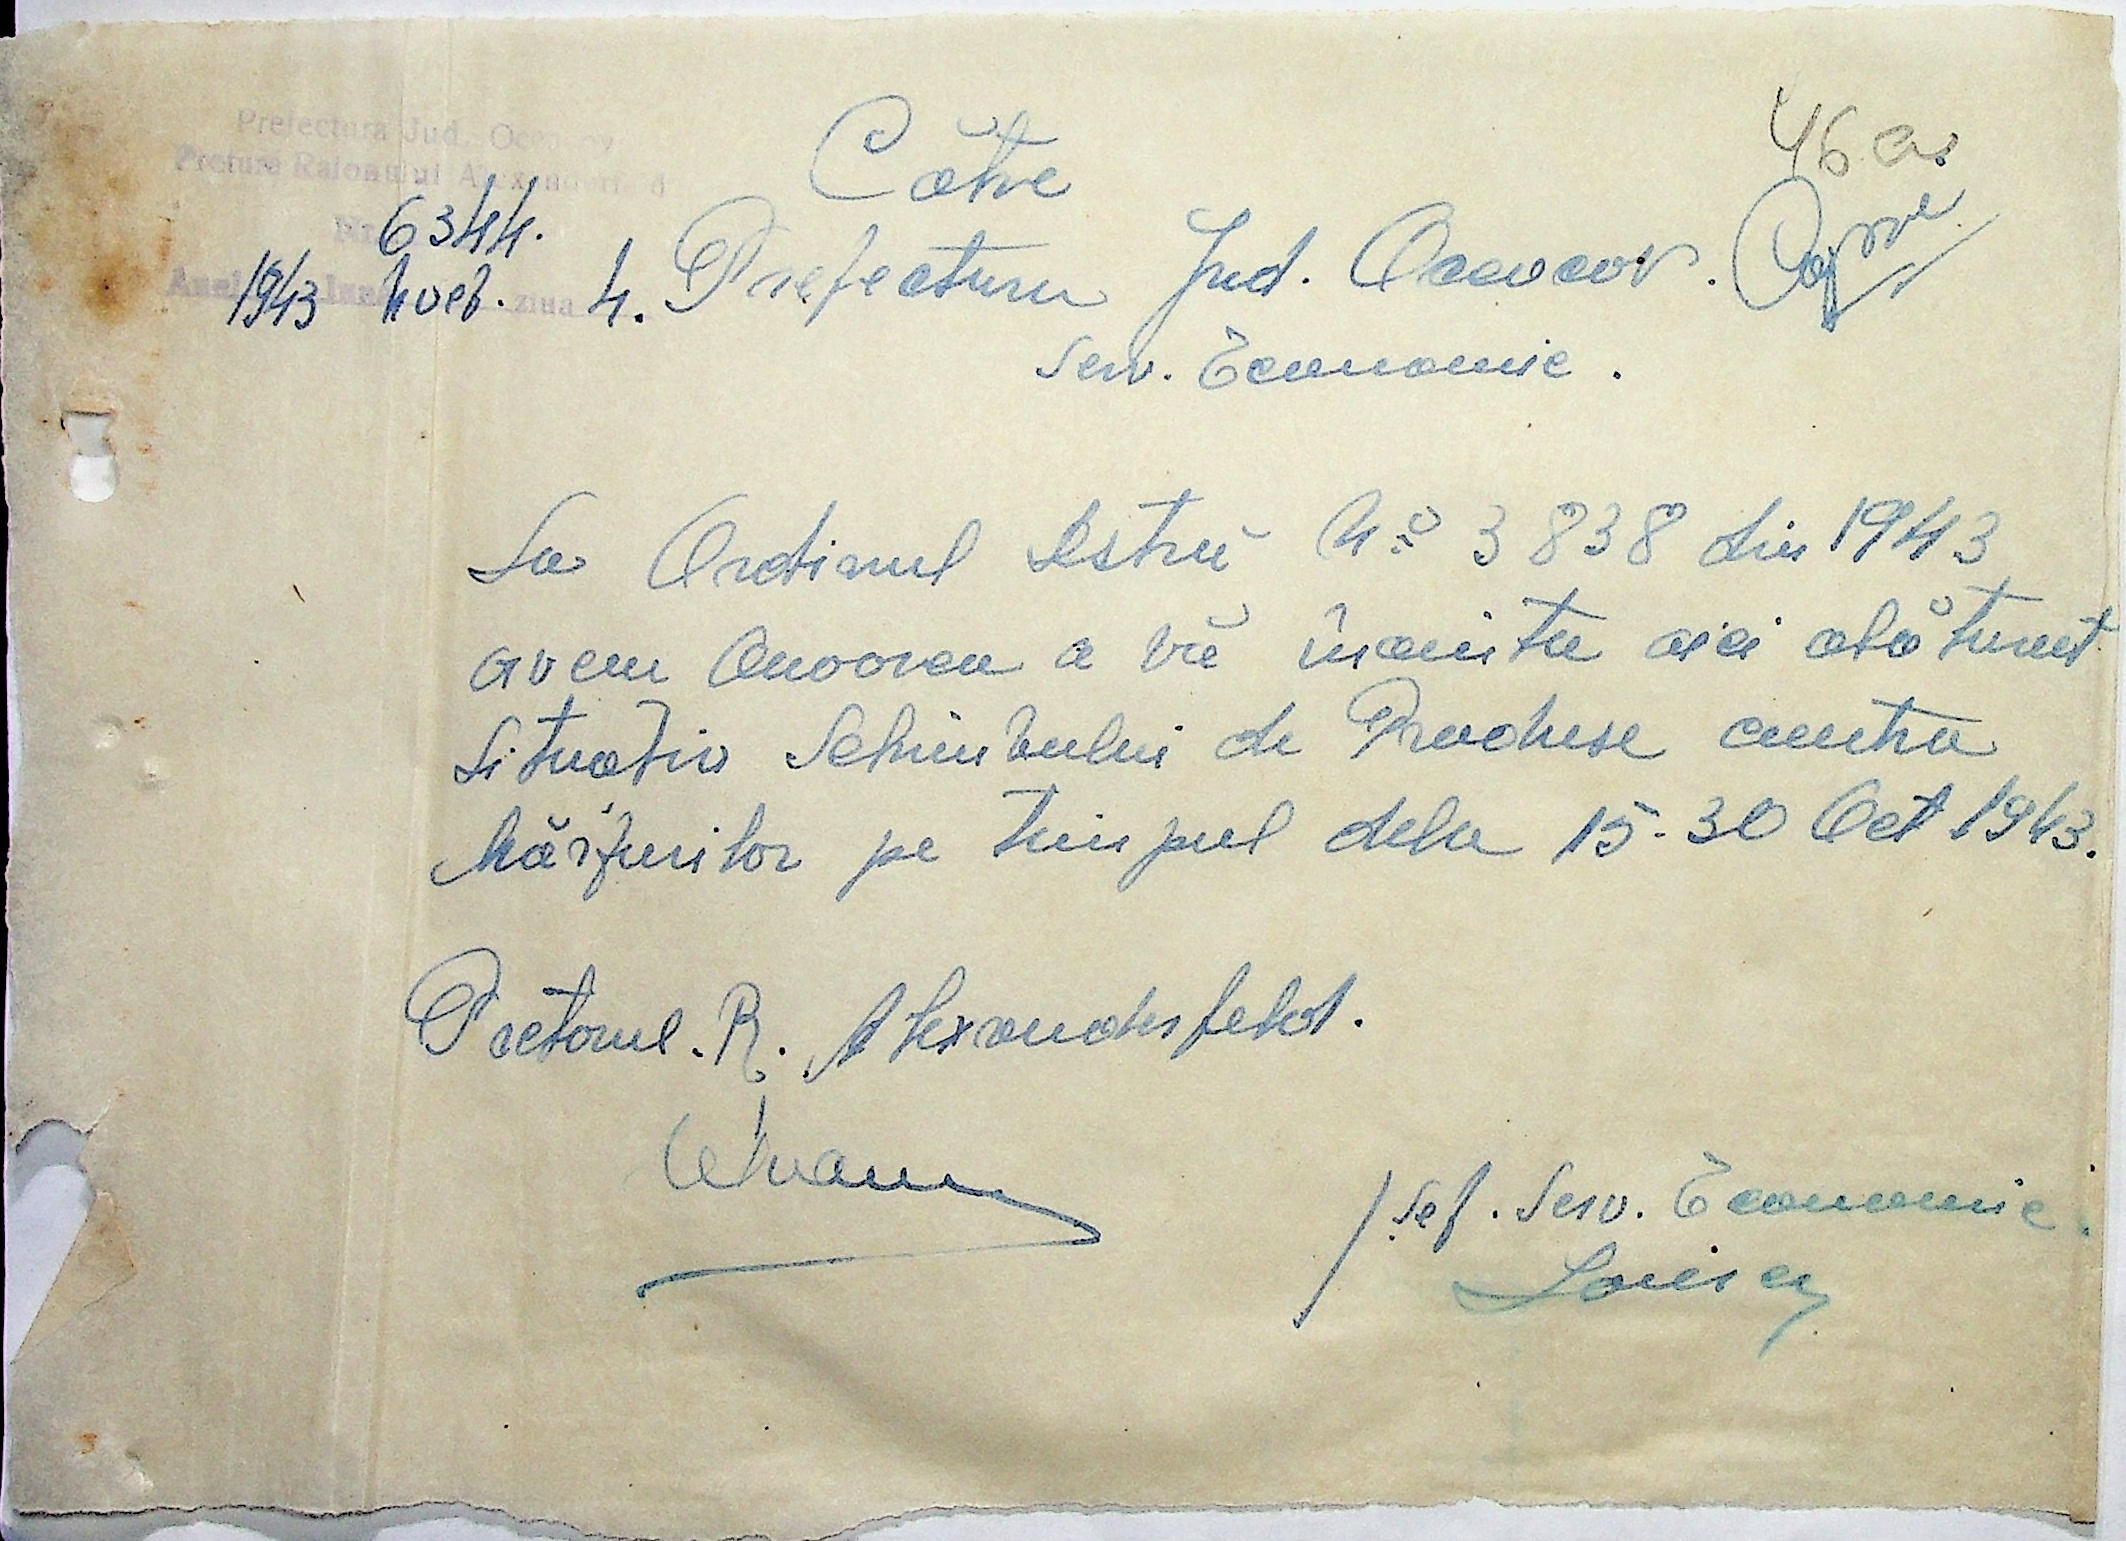 Prefectura Jud. Oceacov
Pretura Raionului Alexanderfeld
Nr. 6344.
Anul 1943 Luna Noeb. ziua 4.
46
Către
Prefectura Jud. Oceacov.
Serv. Economic.
La Ordinul Dstră No 3838 din 1943
avem Onoorea a vă înainta aici alăturat
Situatia Schimbului de Produse contra
Mărfurilor pe timpul dela 15-30 Oct 1943.
Pretorul. R. Alexanderfeld.
Șef. Serv. Economic.